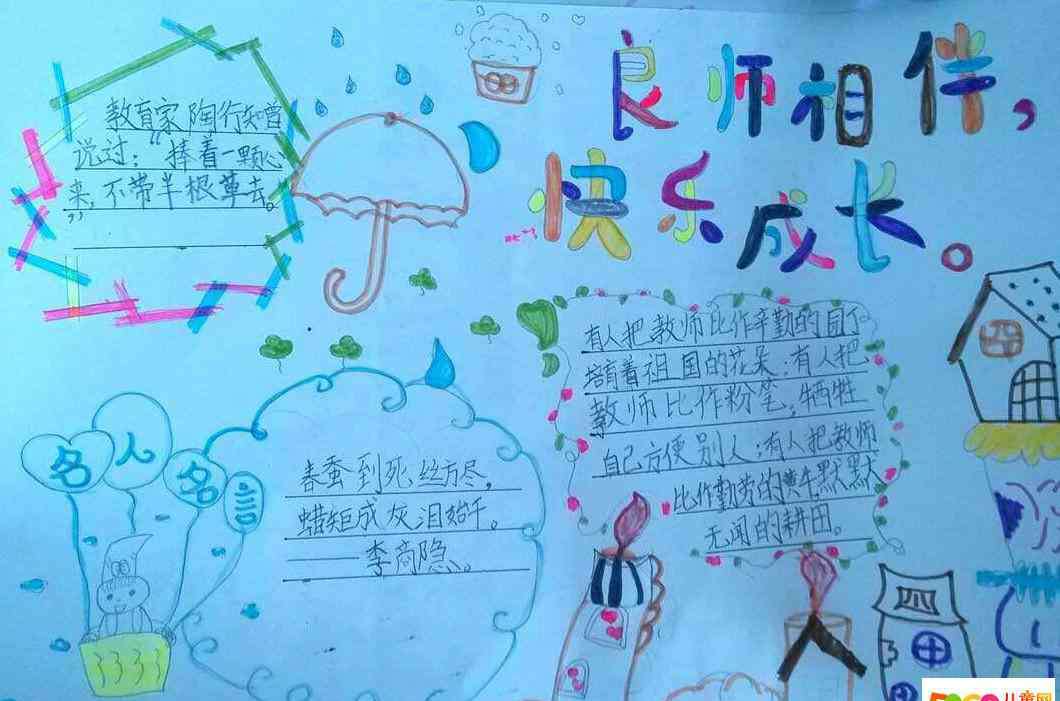 良师相伴，
快乐成长。
教育家陶行知曾
说过："捧着一颗心
来，不带半根草去。
"
有人把教师比作辛勤的园丁
培育着祖国的花朵；有人把
教师比作粉笔，牺牲
自己方便别人；有人把教师
比作勤劳的黄牛默默
无闻的耕田。
名人名言
春蚕到死丝方尽，
蜡炬成灰泪始干。
——李商隐。
四
儿童网